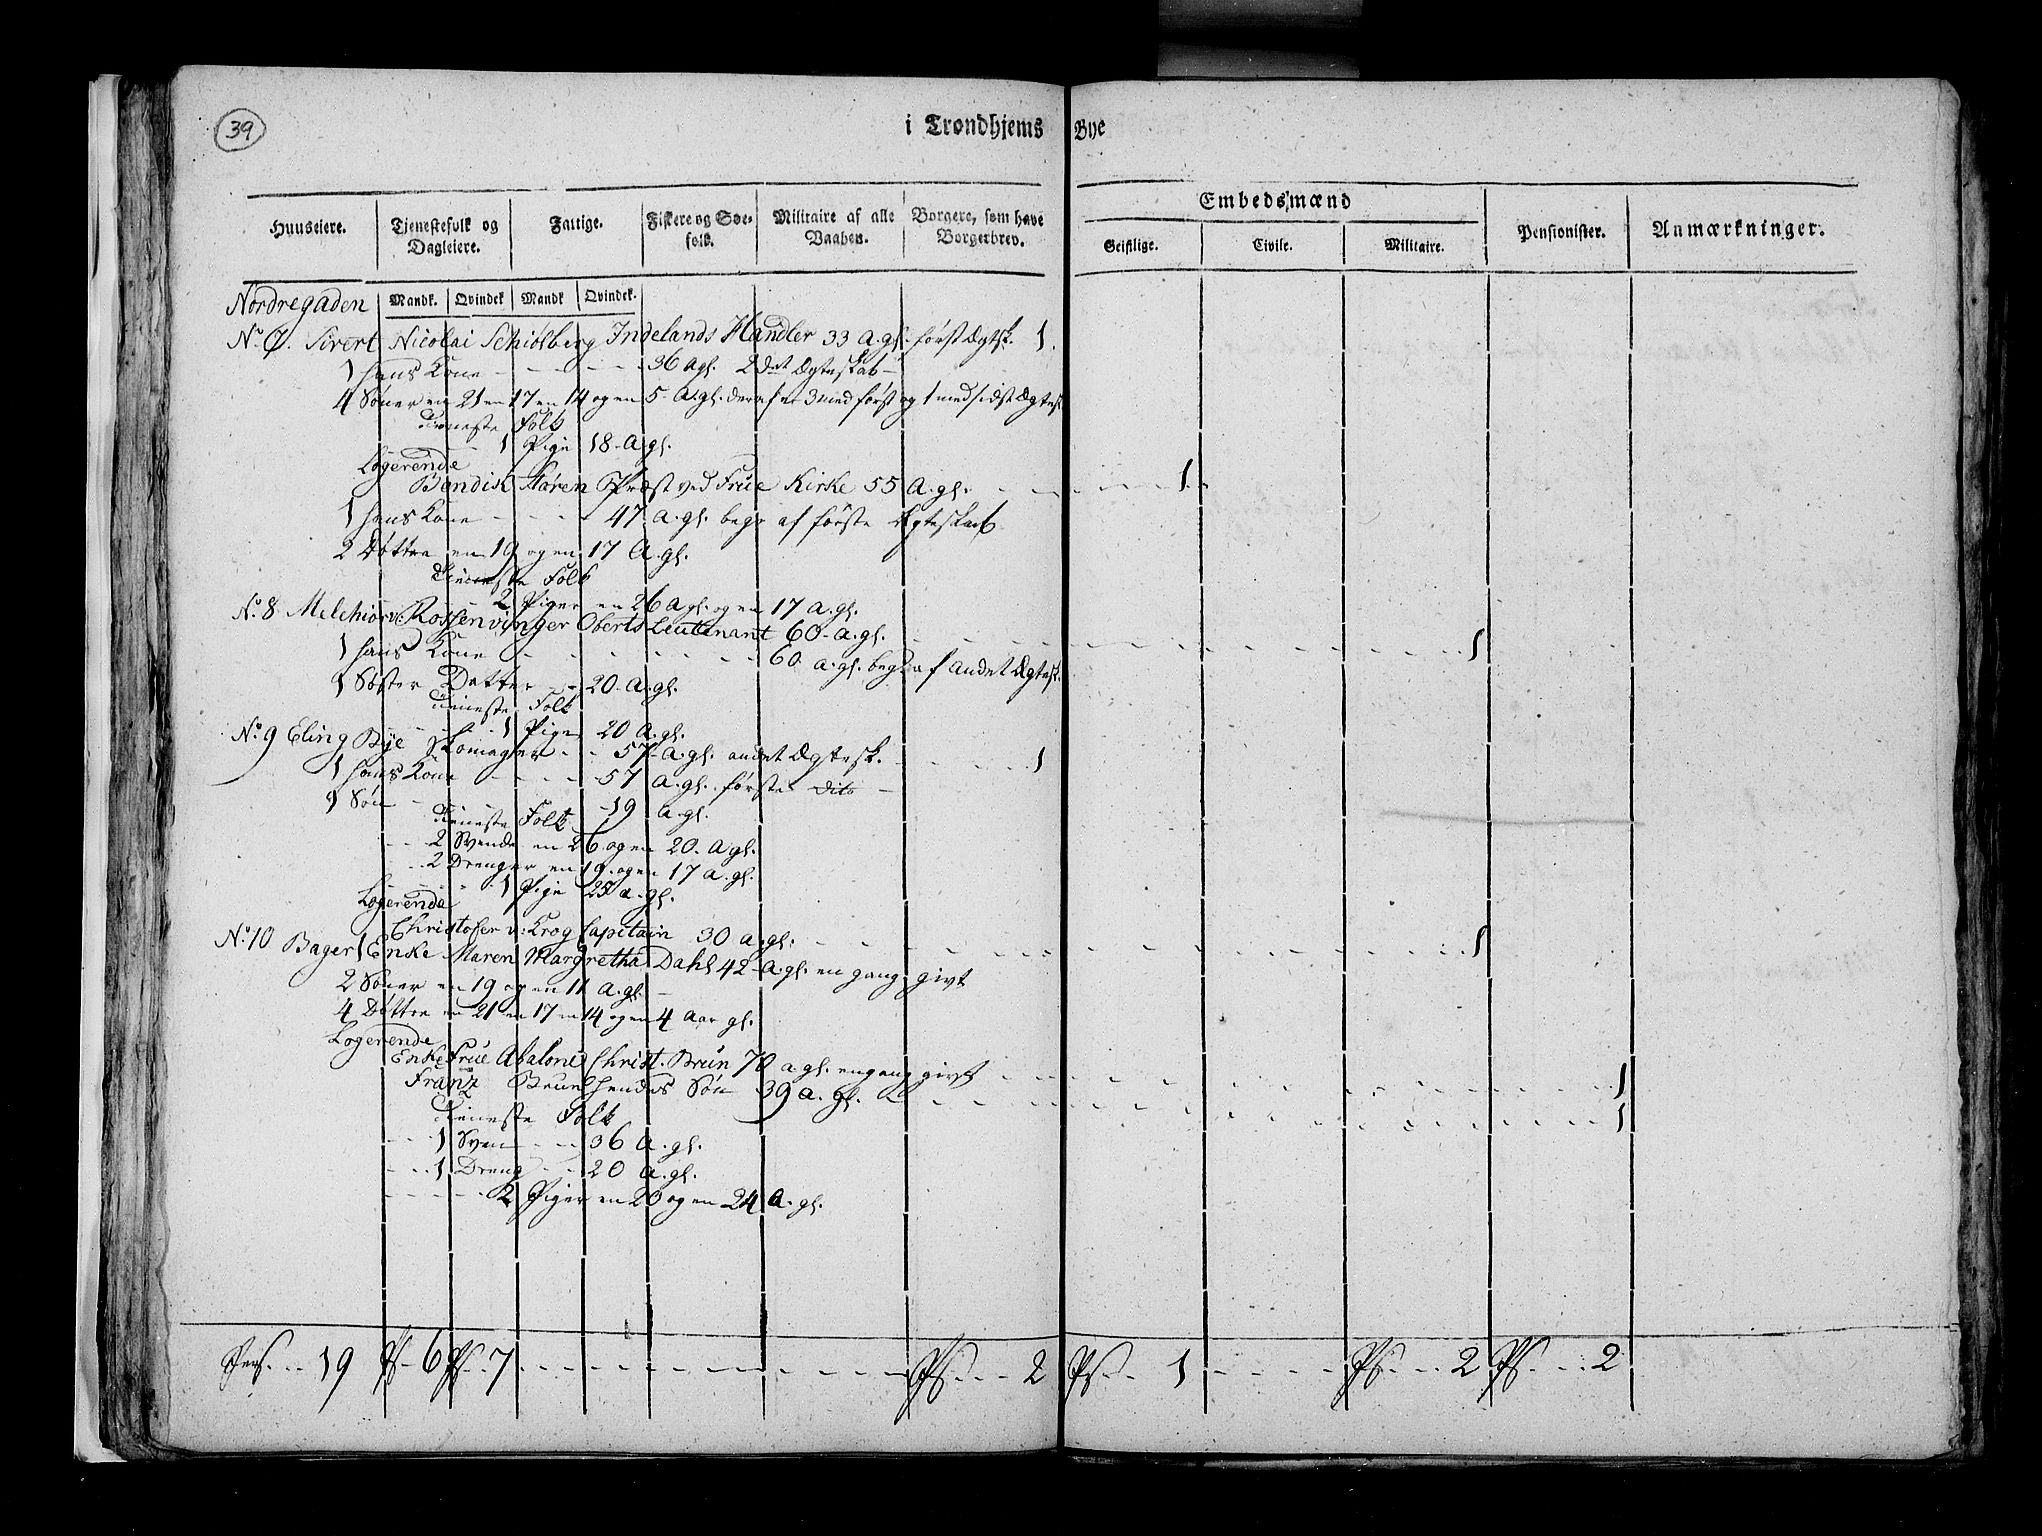 39
i Trondhjems Bye
Huuseiere. Tjenestefolk og Dagleiere. Fattige. Fiskere og Søe-folk. Militaire af alle Vaaben. Borgere, som have Borgerbrev. Embedsmænd Geistlige. Civile. Militaire. Pensionister. Anmærkninger.
Mandk. Qvindek Mandk Qvindek.
Nordregaden
No. 7. Sivert Nicolai Schiölberg Indelands Handler 33 A. gl. först Ægtsk. 1.
1 hans Kone - - - - 36 A gl. 2det Ægteskab -
4 Söner en 21 en 17 en 14 og en 5 - A. gl. deraf er 3 med först og 1 med sidst Ægtesk
Tieneste Folk
1 Pige 18 - A. gl.
Logerende
Bendisk Præst ved Frue Kirke 55 A. gl. - - - - 1 -
1 hans Kone - - - - 47 A. gl. begr af förste Ægteskab
2 Döttre en 19 og en 17 A. gl.
Tieneste Folk
- - - 2 Piger en 26 A gl. og en 17 A. gl.
No. 8 Melchior v: Rossenvinger Oberts Leutenant 60 - A. gl. - - - - 1
1 hans Kone - - - - 60 A. gl. begr af andet Ægtesk.
1 Söster Datter - - 20 - A. gl.
Tieneste Folk
- - - 1 Pige 20 A. gl.
No. 9 Eling Bye Skomager - - 57 - A. gl. andet Ægtesk. - - - - 1
1 hans Kone - - - - 57 A. gl. förste dito -
1 Sön - - - - 19 A. gl.
Tieneste Folk
- - 2 Svende en 26 og en 20. A gl.
- - 2 Drenger en 19. og en 17 A. gl.
- - - 1 Pige 25 A. gl.
Logerende
Christofer v: Krog Capitain 30 A. gl. - - - - 1
No. 10 Bager Enke Maren Margretha Dahl 42 - A. gl. en gang givt
2 Söner en 19 og en 11 A. gl. -
4 Döttre en 21 en 17 en 14 og en 4 Aar gl.
Logerende
Enke Frue Abaloni Christ. Brun 70 A. gl. engang givt - - - - 1
Franz Brun hendes Sön 39 A. gl. - - - - 1
Tieneste Folk
- - 1 Sven - - 36 A. gl.
- - 1 Dreng - - 20 A. gl.
- - - - 2 Piger en 20 og en 24 A. gl.
Pers. - - 19 Ps - 6 Ps - 7 - - - - Ps - - - 2 Ps - - 1 - - - - Ps - - - 2 Ps - - - 2